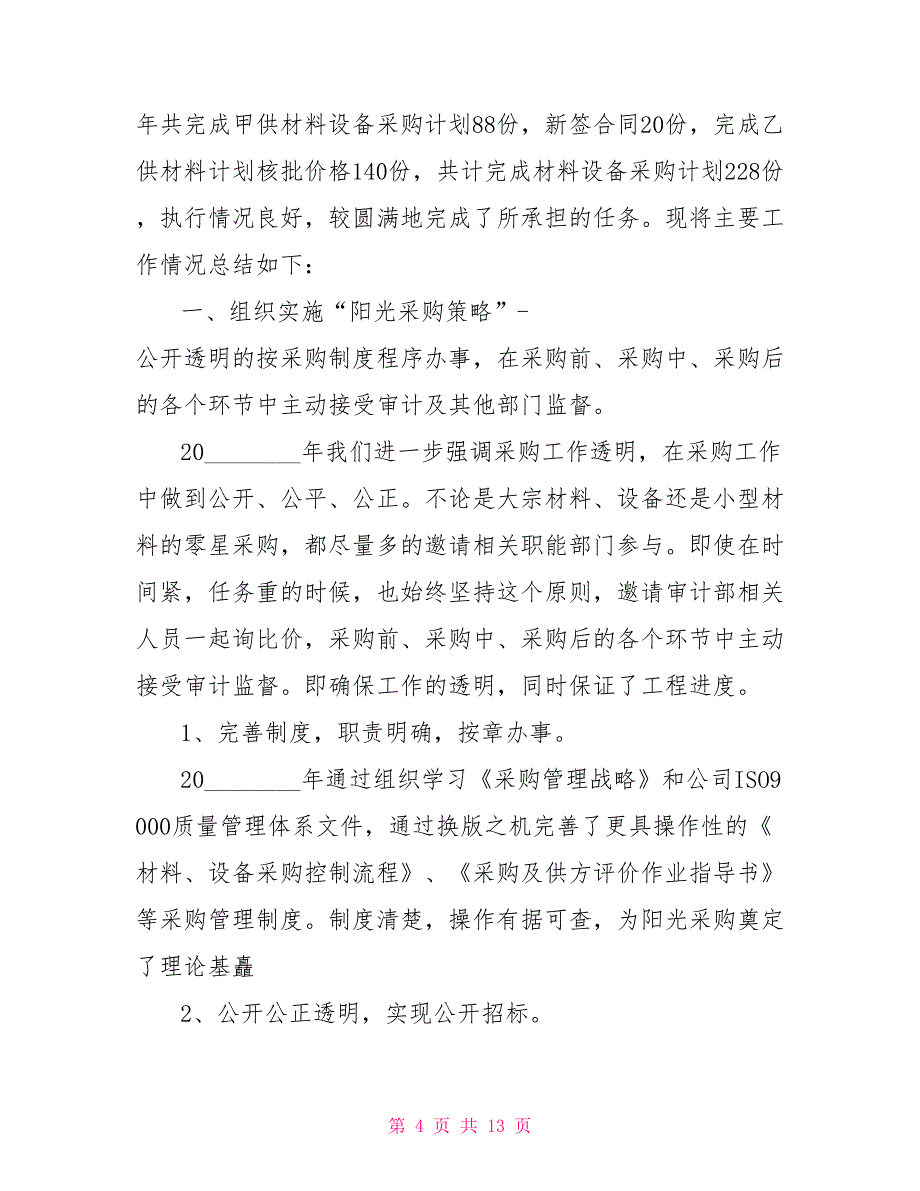 年共完成甲供材料设备采购计划88份，新签合同20份，完成乙
供材料计划核批价格140份，共计完成材料设备采购计划228份
，执行情况良好，较圆满地完成了所承担的任务。现将主要工
作情况总结如下：
一、组织实施“阳光采购策略”-
公开透明的按采购制度程序办事，在采购前、采购中、采购后
的各个环节中主动接受审计及其他部门监督。
20________年我们进一步强调采购工作透明，在采购工作
中做到公开、公平、公正。不论是大宗材料、设备还是小型材
料的零星采购，都尽量多的邀请相关职能部门参与。即使在时
间紧，任务重的时候，也始终坚持这个原则，邀请审计部相关
人员一起询比价，采购前、采购中、采购后的各个环节中主动
接受审计监督。即确保工作的透明，同时保证了工程进度。
1、完善制度，职责明确，按章办事。
20________年通过组织学习《采购管理战略》和公司ISO9
000质量管理体系文件，通过换版之机完善了更具操作性的《
材料、设备采购控制流程》、《采购及供方评价作业指导书》
等采购管理制度。制度清楚，操作有据可查，为阳光采购奠定
了理论基矗
2、公开公正透明，实现公开招标。
第 4 页 共 13 页